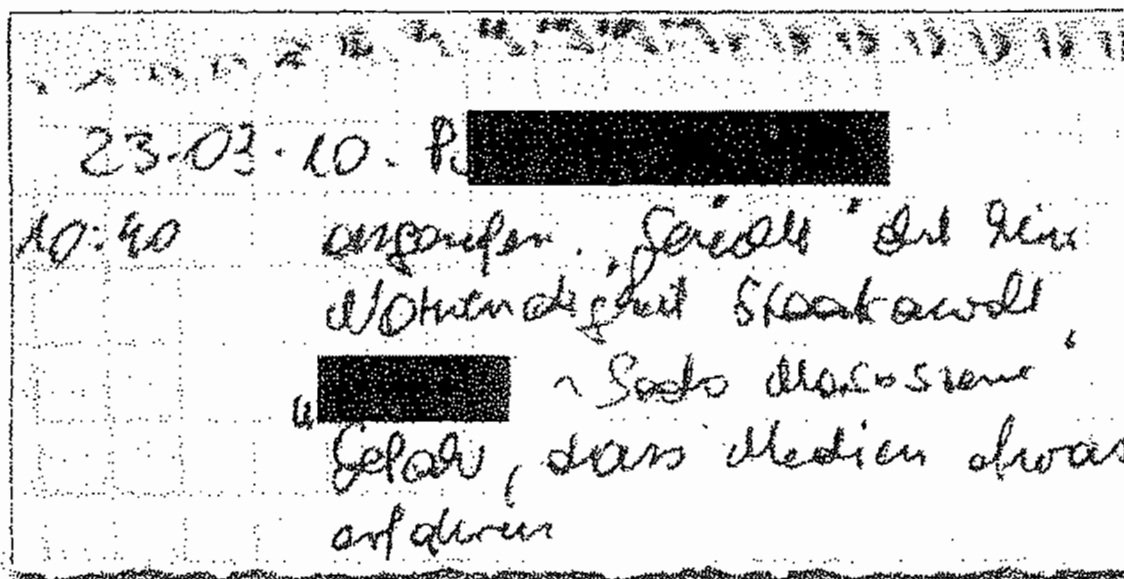 23.03.10. P.
10:40 angerufen. keine
Notwendigkeit Staatsanwalt
Sado Masoszene"
Gefahr, dass Medien etwas
erfahren